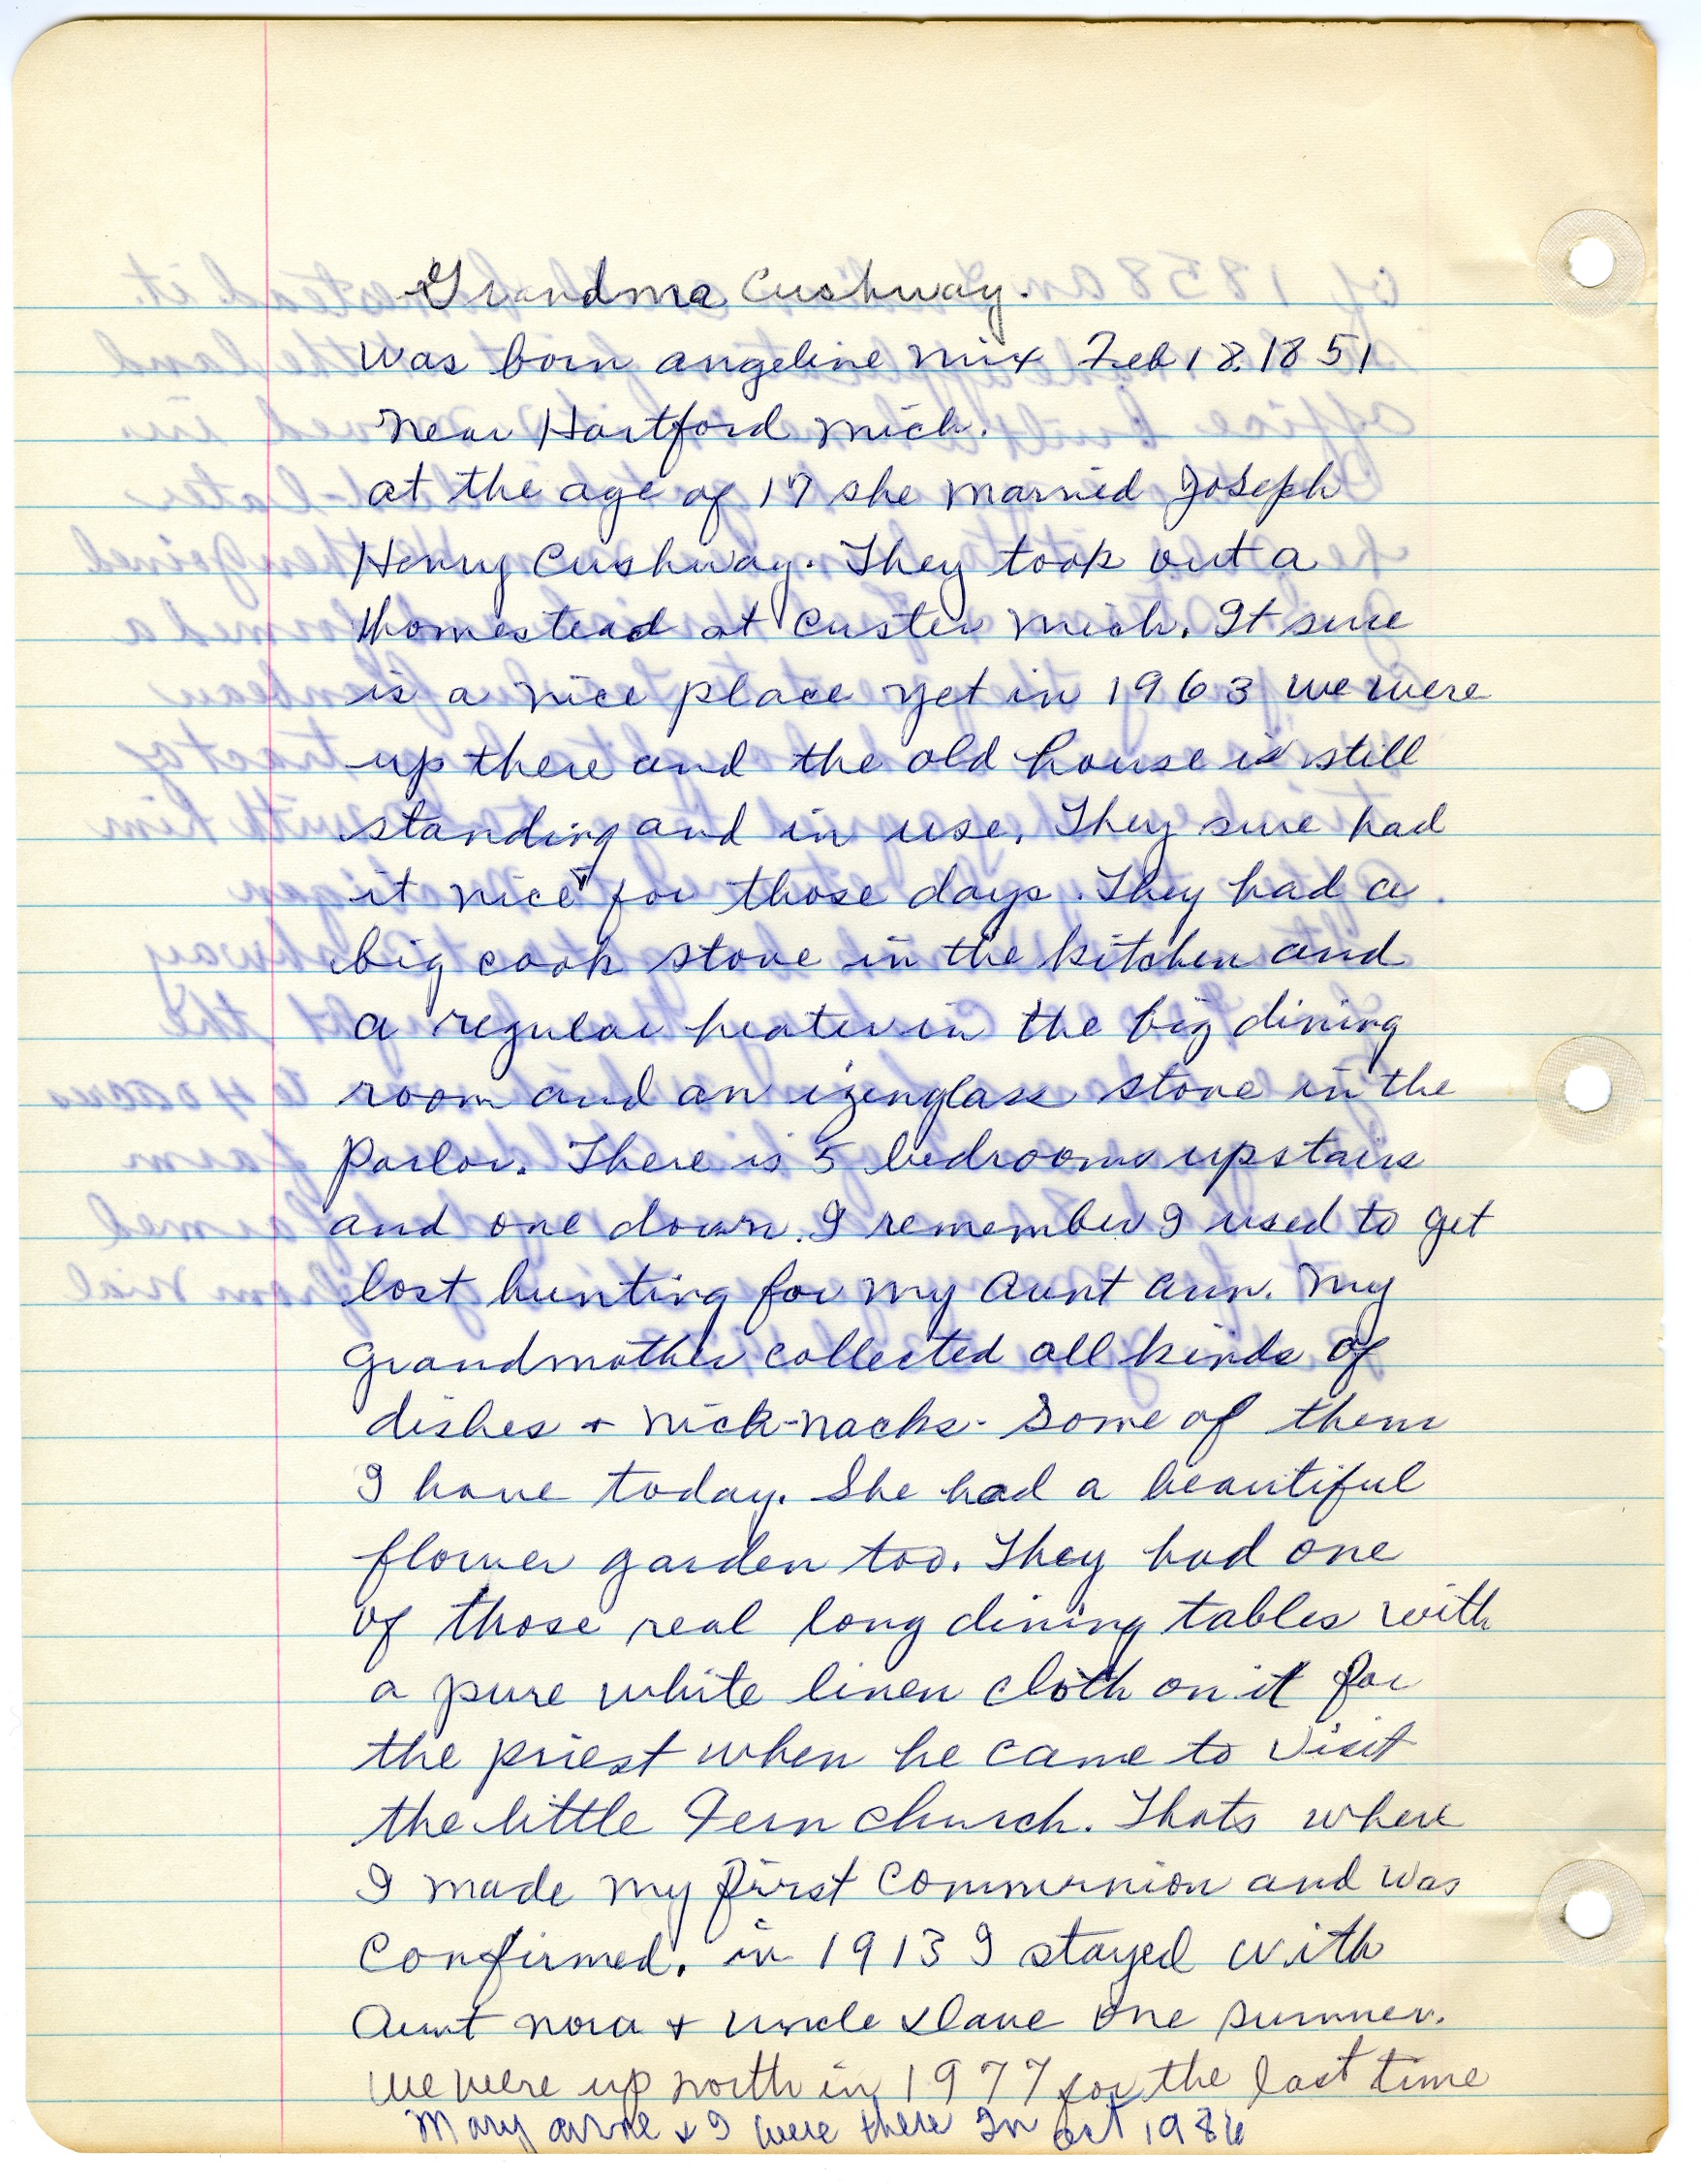 Grandma Cushway.
was born angeline mix Feb 18. 1851
near Hartford Mich.
at the age of 17 she married Joseph
Henry Cushway. They took out a
homestead at Custer Mich. It sure
is a nice place yet in 1963 we were
up there and the old house is still
standing and in use. They sure had
it nice for those days. They had a
big cook stove in the kitchen and
a regular heater in the big dining
room and an izenglass stove in the
Parlor. There is 5 bedrooms upstairs
and one down. I remember I used to get
lost hunting for my Aunt Ann. My
grandmother collected all kinds of
dishes + nick-nacks- some of them
I have today. She had a beautiful
flower garden too. They had one
of those real long dining tables with
a pure white linen cloth on it for
the priest when he came to visit
the little Fern church. Thats where
I made my first Communion and was
Confirmed. in 1913 I stayed with
Aunt Nora + Uncle Dave one summer.
We were up north in 1977 for the last time
Mary Anne & I were there In Oct 1986